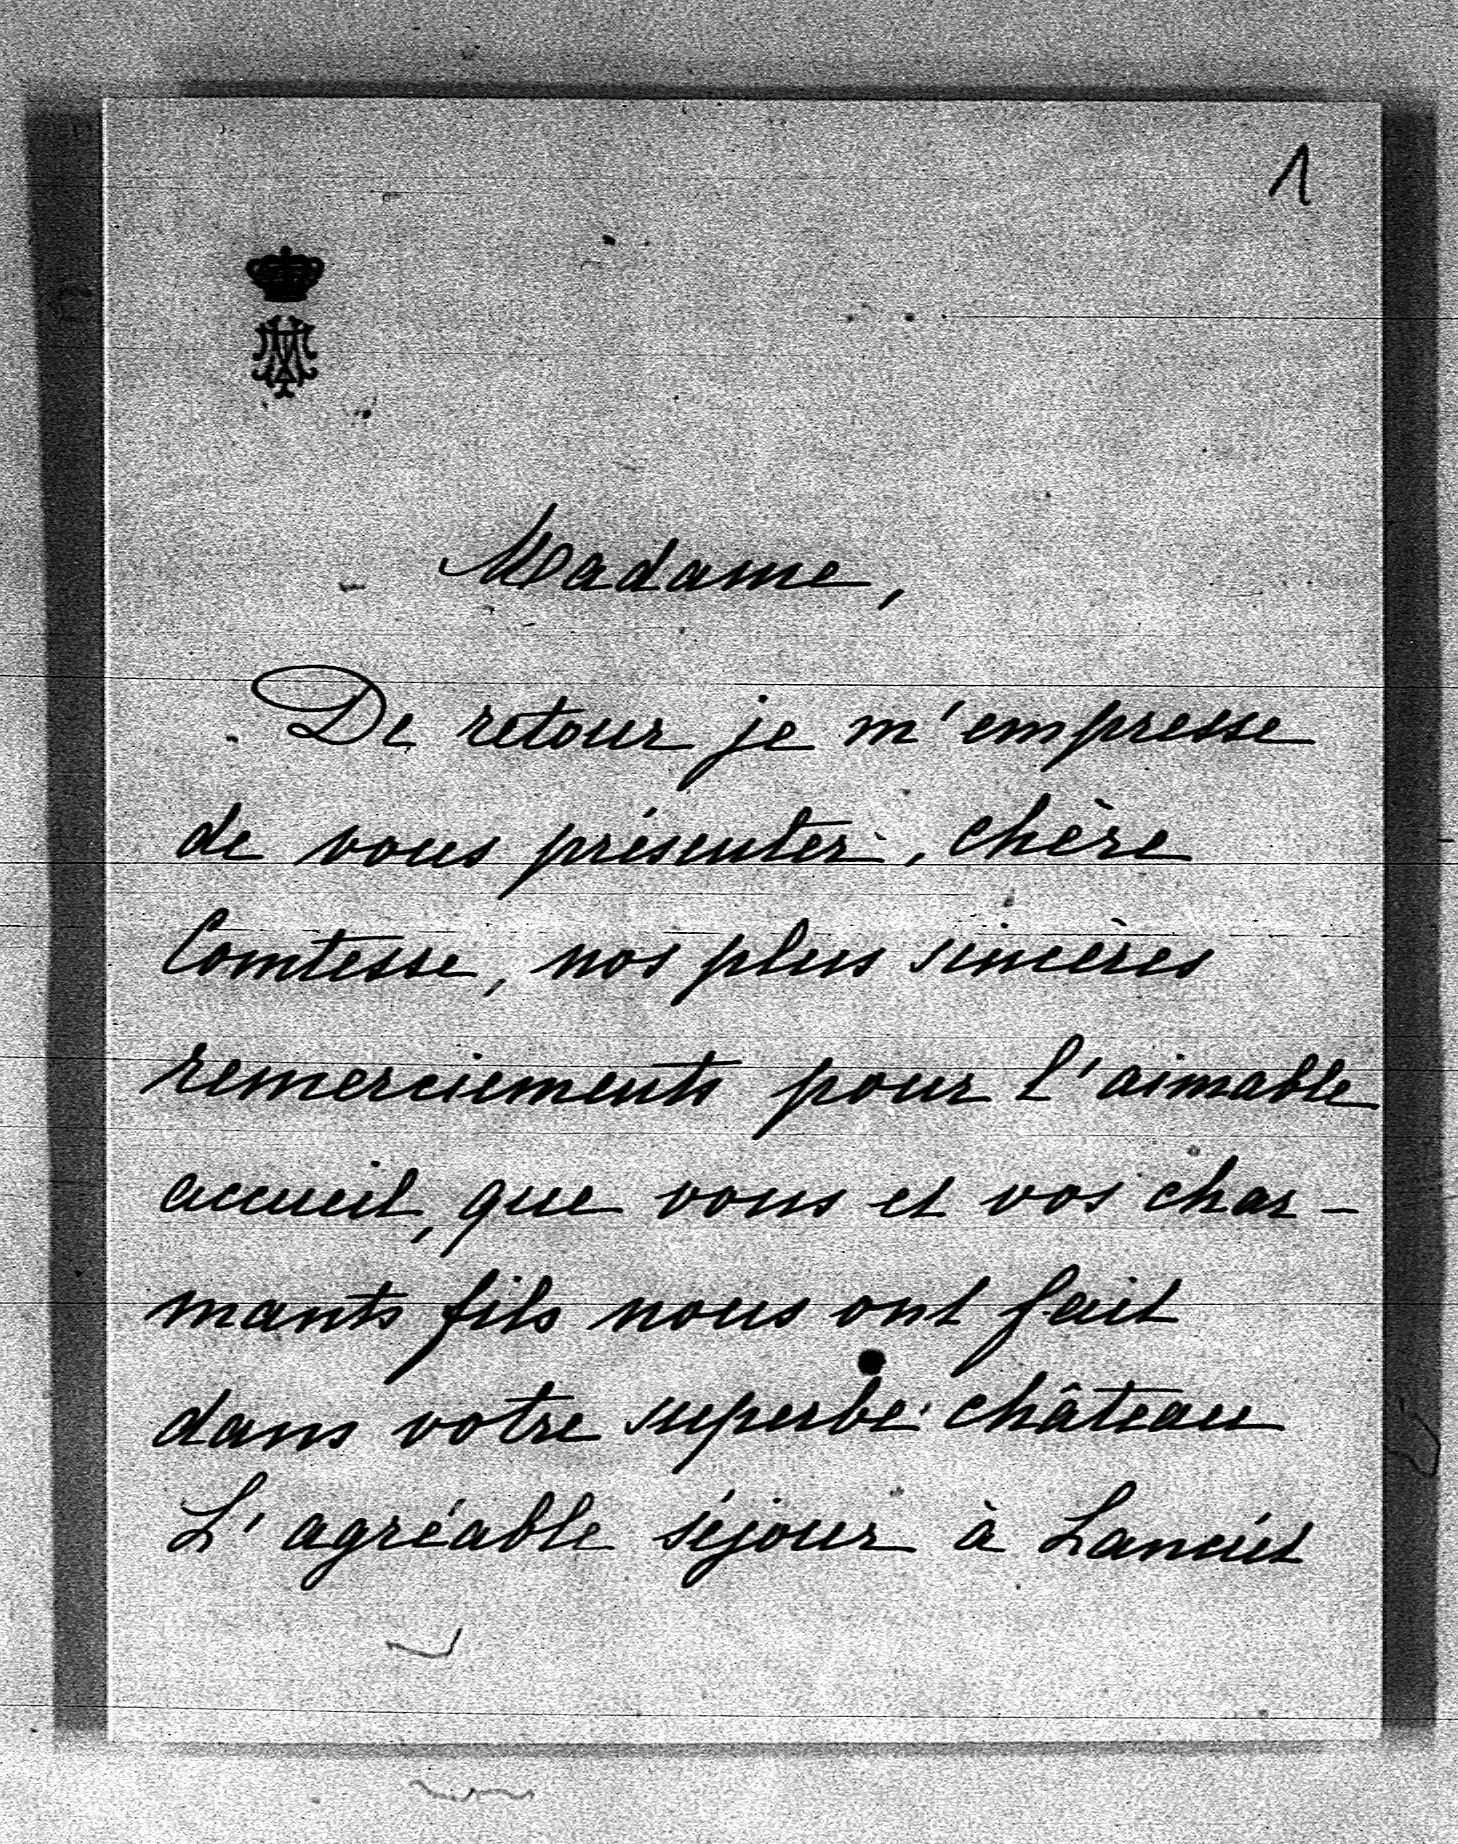 1
Madame,
De retour je m'empresse
de vous présenter, chère
Comtesse, nos plus sincères
remerciements pour l'aimable
accueil, que vous et vos char-
mants fils nous ont fait
dans votre superbe château
L'agréable séjour à Lancút